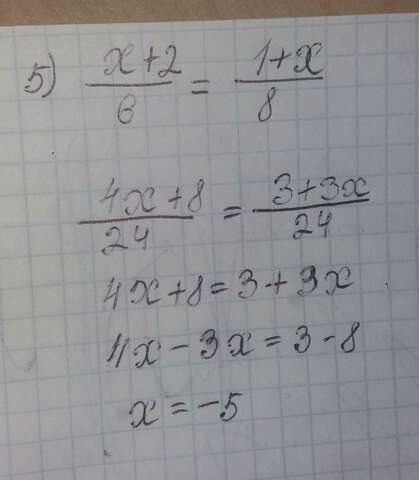 5) (x+2)/6 = (1+x)/8
(4x+8)/24 = (3+3x)/24
4x+8=3+3x
4x-3x=3-8
x=-5